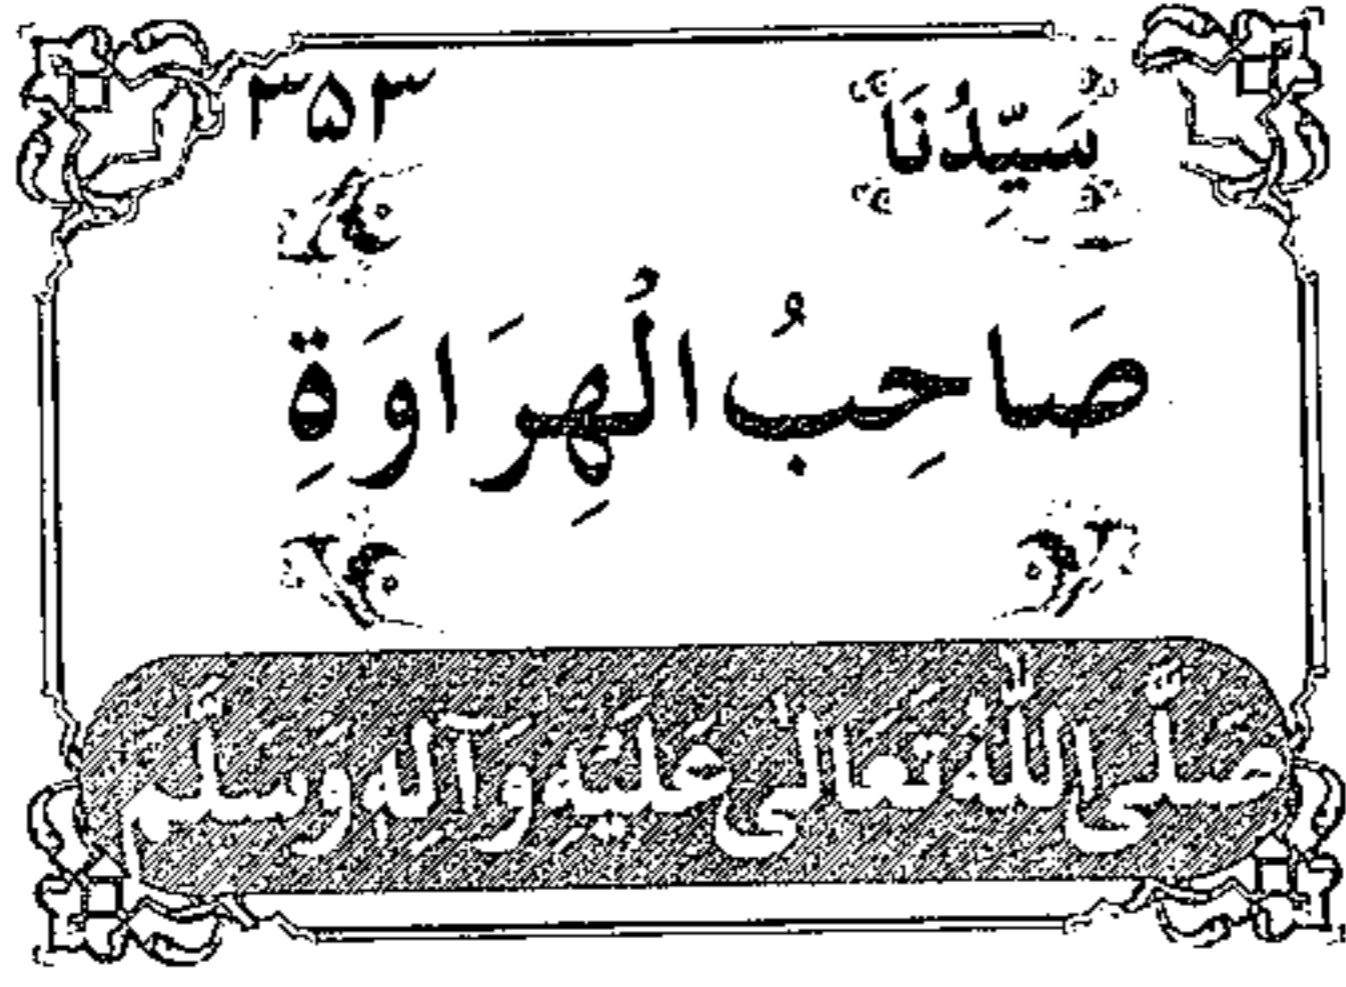 سَيِّدُنَا ۳۵۳
صَاحِبُ الْهِرَاوَةِ
صَلَّى اللّٰهُ تَعَالٰى عَلَيْهِ وَآلِهٖ وَسَلَّمَ